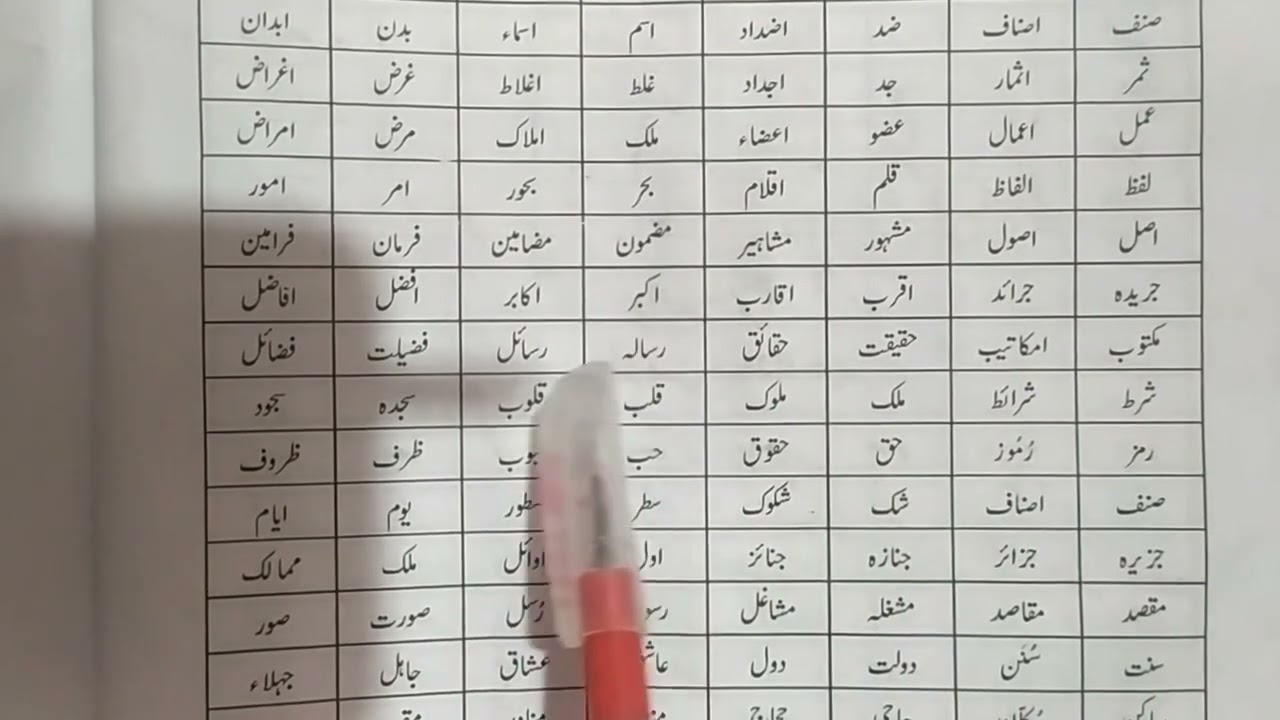 صنف اصناف ضد اضداد اسم اسماء بدن ابدان
ثمر اثمار جد اجداد غلط اغلاط غرض اغراض
عمل اعمال عضو اعضاء ملک املاک مرض امراض
لفظ الفاظ قلم اقلام بحر بحور امر امور
اصل اصول مشہور مشاہیر مضمون مضامین فرمان فرامین
جریدہ جرائد اقرب اقارب اکبر اکابر افضل افاضل
مکتوب امکاتیب حقیقت حقائق رسالہ رسائل فضیلت فضائل
شرط شرائط ملک ملوک قلب قلوب سجدہ سجود
رمز رُموز حق حقوق حب ظرف ظروف
صنف اصناف شک شکوک سطر سطور یوم ایام
جزیرہ جزائر جنازہ جنائز اول اوائل ملک ممالک
مقصد مقاصد مشغلہ مشاغل رُسل صورت صور
سنت سُنَن دولت دول عشاق جاہل جہلاء